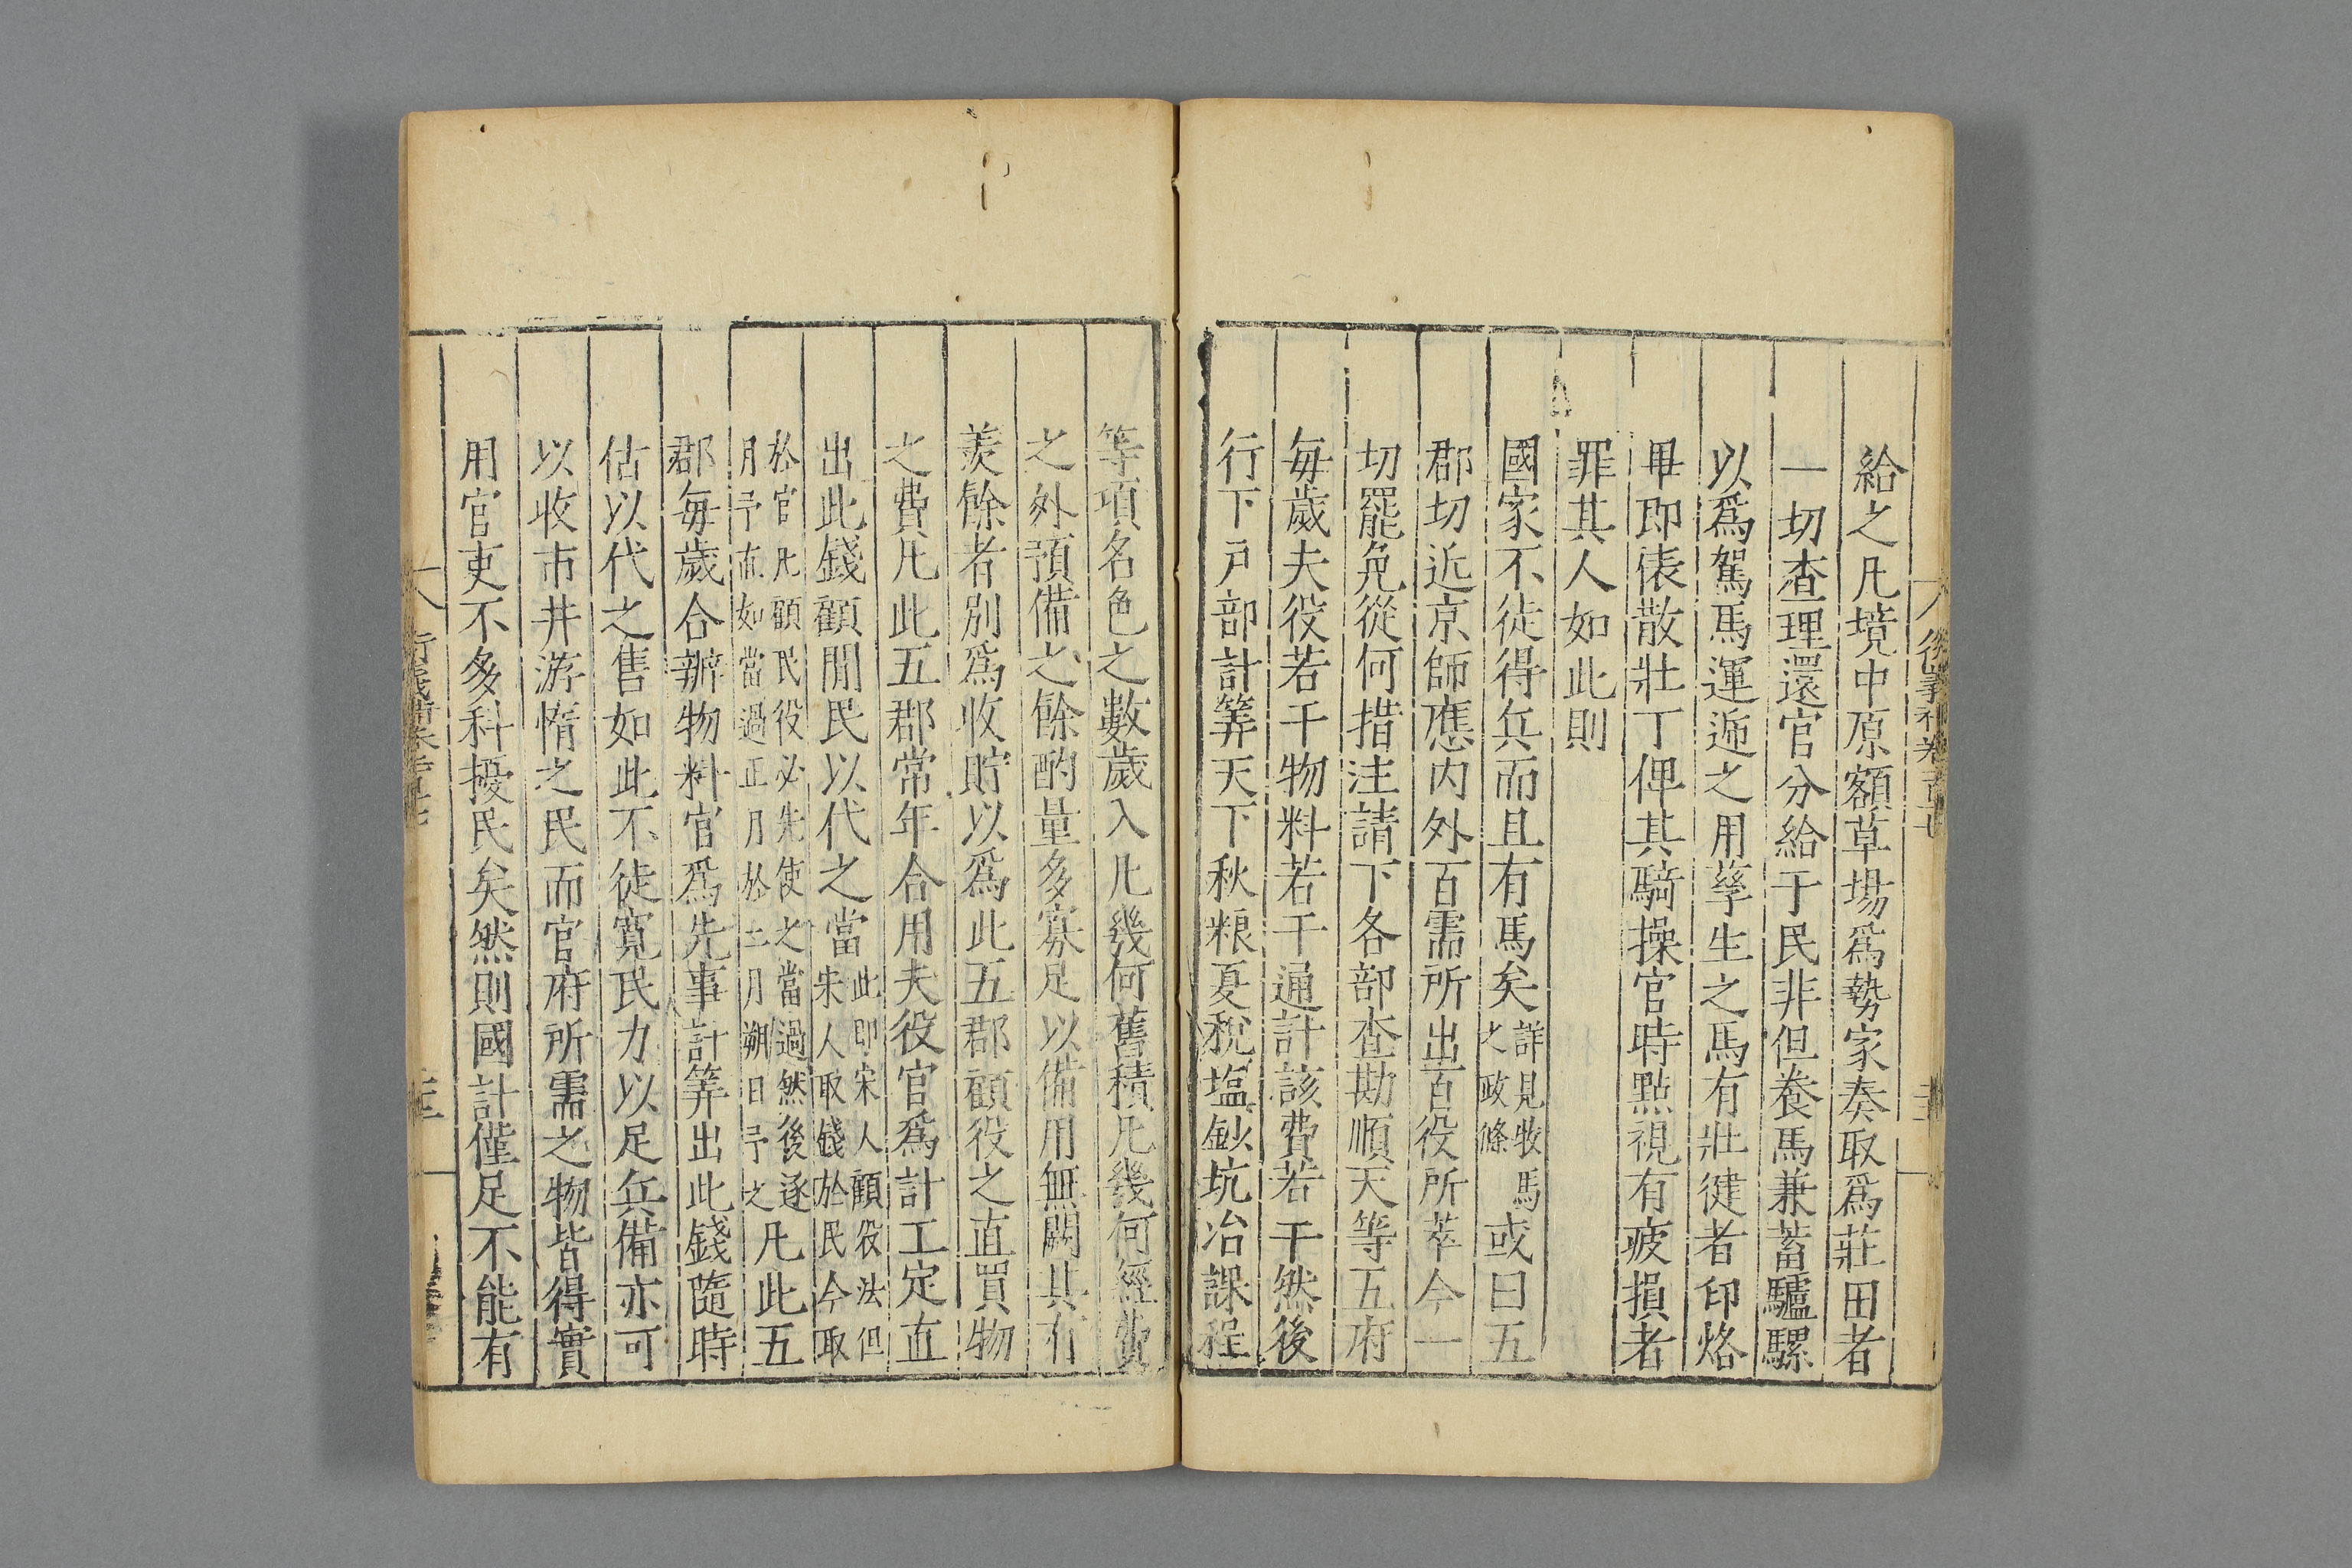 給之凡境中原額草場爲勢家奏取爲莊田者
一切査理還官分給于民非但養馬兼蓄驢騾
以爲駕馬運遞之用孳生之馬有壯健者印烙
畢即俵散壯丁俾其騎操官時點視有疲損者
罪其人如此則
國家不徒得兵而且有馬矣詳見牧馬之政條或曰五
郡切近京師應內外百需所出百役所萃今一
切罷免從何措注請下各部査勘順天等五府
毎歲夫役若干物料若干通計該費若干然後
行下戶部計筭天下秋粮夏稅塩鈔坑冶課程
等項名色之數歲入凡幾何舊積凡幾何經費
之外預備之餘酌量多寡足以備用無闕其有
羨餘者別爲收貯以爲此五郡顧役之直買物
之費凡此五郡常年合用夫役官爲計工定直
出此錢顧閒民以代之當此即宋人顧役法但宋人取錢於民今取
於官凡顧民役必先使之當過然後逐月予直如當過正月於二月朔日予之凡此五
郡毎歲合辦物料官爲先事計筭出此錢隨時
估以代之售如此不徒寬民力以足兵備亦可
以收市井游惰之民而官府所需之物皆得實
用官吏不多科擾民矣然則國計僅足不能有